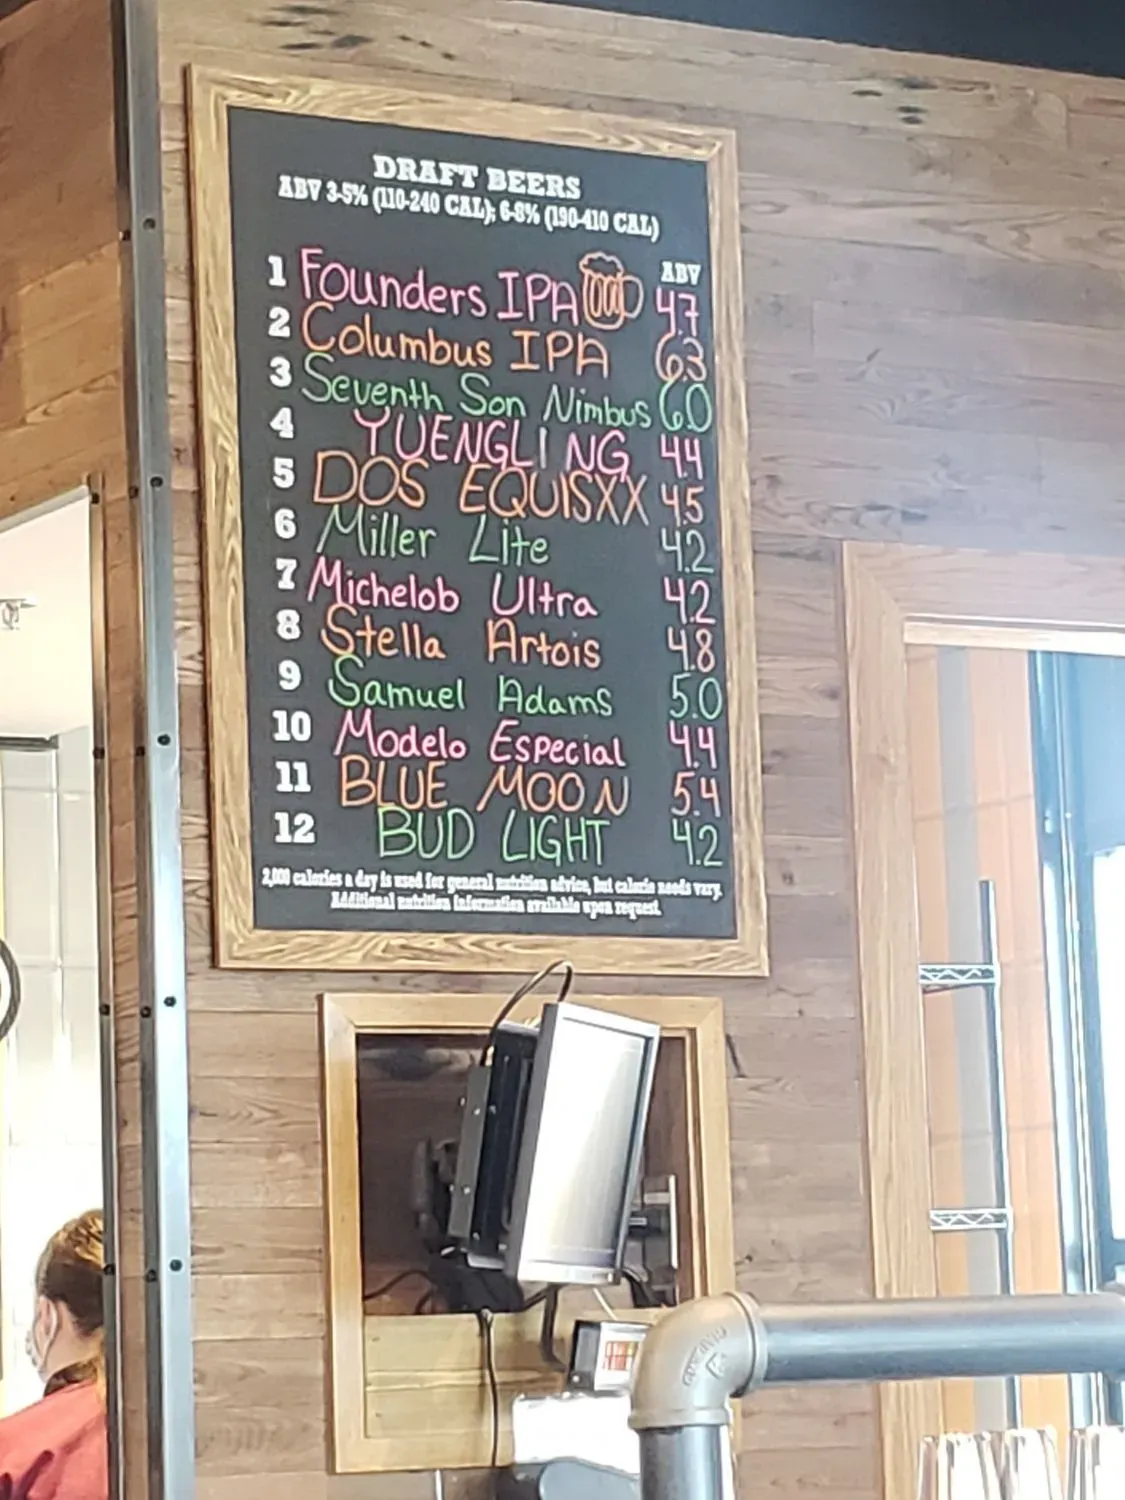 DRAFT BEERS
ABV 3-5% (110-240 CAL); 6-8% (190-410 CAL)
ABV
1 Founders IPA 4.7
2 Columbus IPA 6.3
3 Seventh Son Nimbus 6.0
4 YUENGLING 4.4
5 DOS EQUISXX 4.5
6 Miller Lite 4.2
7 Michelob Ultra 4.2
8 Stella Artois 4.8
9 Samuel Adams 5.0
10 Modelo Especial 4.4
11 BLUE MOON 5.4
12 BUD LIGHT 4.2
2,000 calories a day is used for general nutrition advice, but calorie needs vary.
Additional nutrition information available upon request.